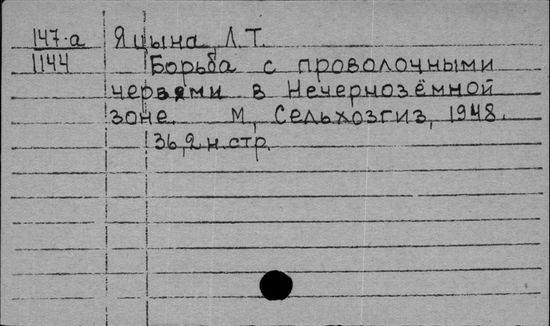 147-а Яцына Л.Т.
1144 Борьба с проволочными
червями в Нечернозёмной
зоне. М, Сельхозгиз, 1948.
36,2 н.стр.